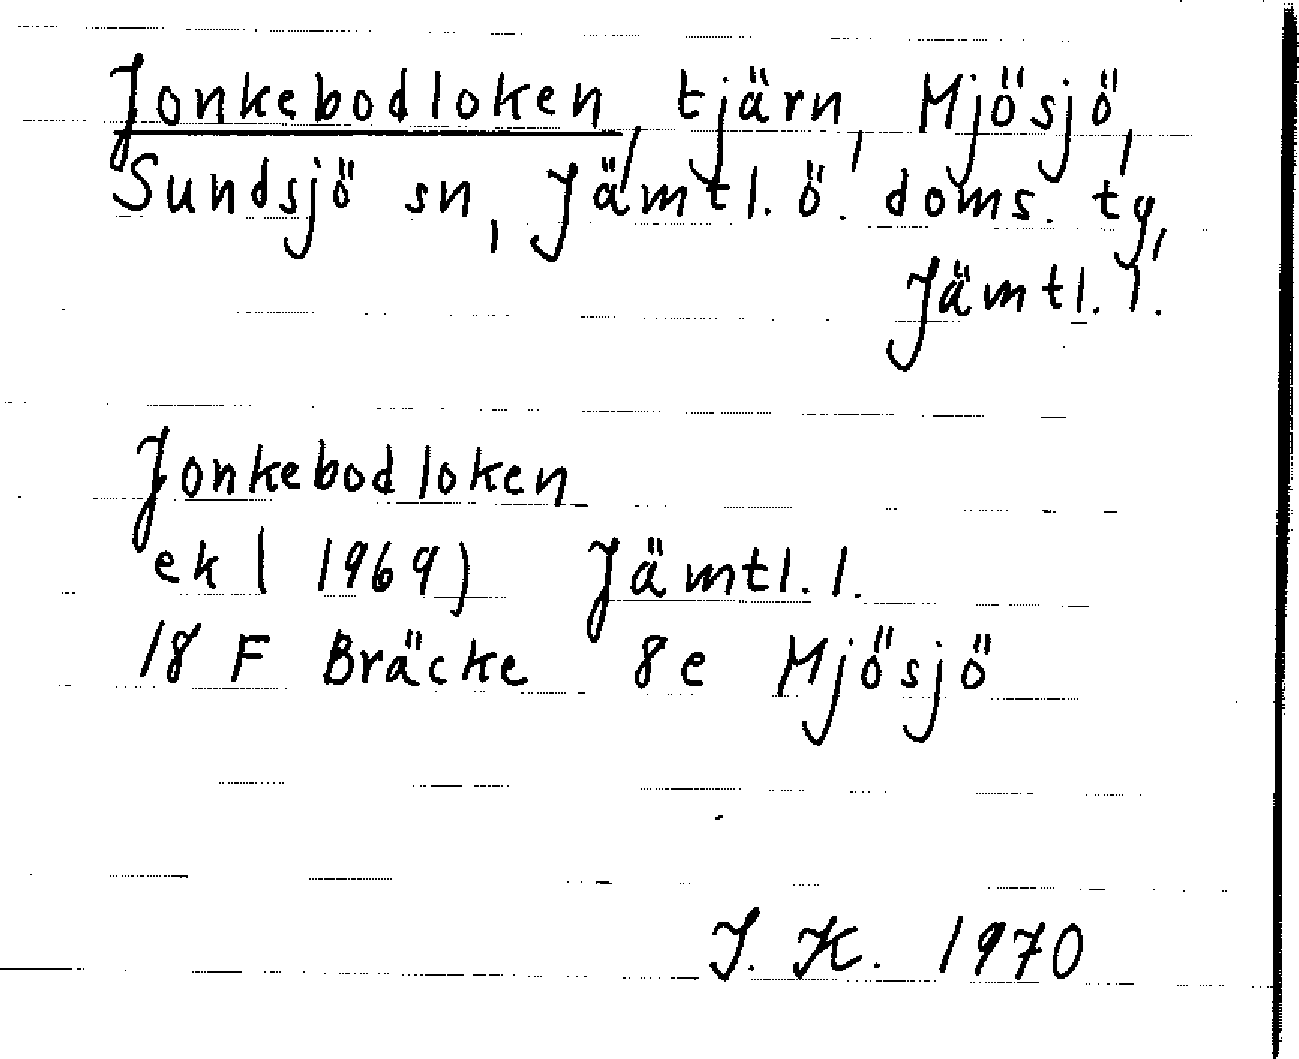 Jonkebodloken, tjärn, Mjösjö,
Sundsjö sn, Jämtl. ö. doms. tg,
Jämtl. l.
Jonkebodloken
ek (1969) Jämtl. l.
18 F Bräcke 8e Mjösjö
J. K. 1970